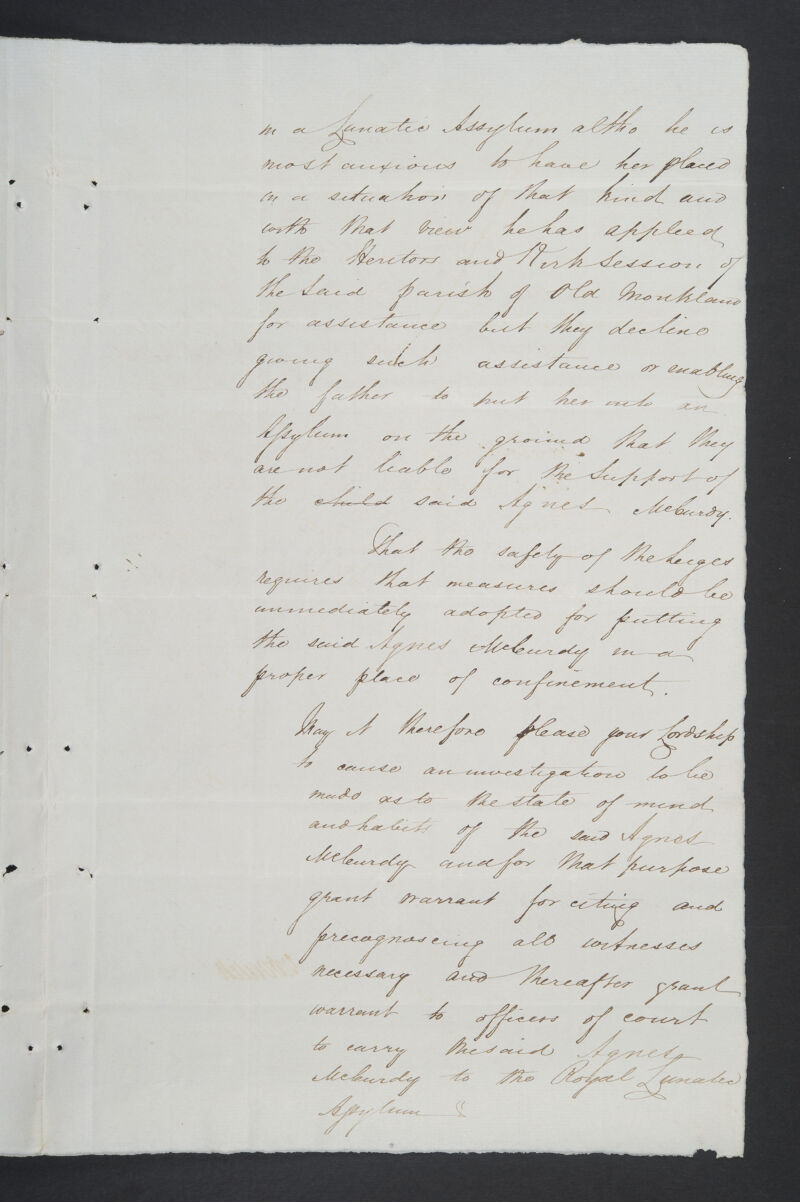 in a Lunatic Assylum altho he is
most anxious to have her placed
in a situation of that kind and
with that view he has applied
to the Heritors and Kirk Session of
the said parish of Old Monkland
for assistance but they decline
giving such assistance or enabling
the father to put her into an
Assylum on the ground that they
are not liable for the support of
the child said Agnes McCurdy.
That the safety of the leiges
requires that measures should be
immediately adopted for putting
the said Agnes McCurdy in a
proper place of confinement.
May it therefore please your Lordship
to cause an investigation to be
made as to the state of mind
and habits of the said Agnes
McCurdy and for that purpose
grant warrant for citing and
precognoscing all witnesses
necessary and thereafter grant
warrant to officers of court
to carry the said Agnes
McCurdy to the Royal Lunatic
Assylum &